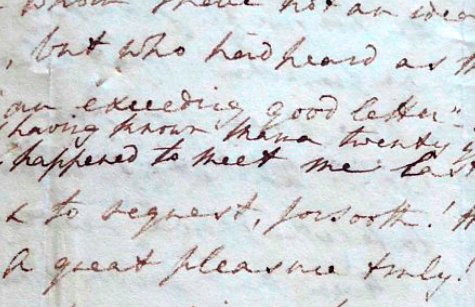 know there not an idea
, but who had heard as
an exceeding good letter"
having known Mama twenty
happened to meet me last
& to request, forsooth!
A great pleasure truly!